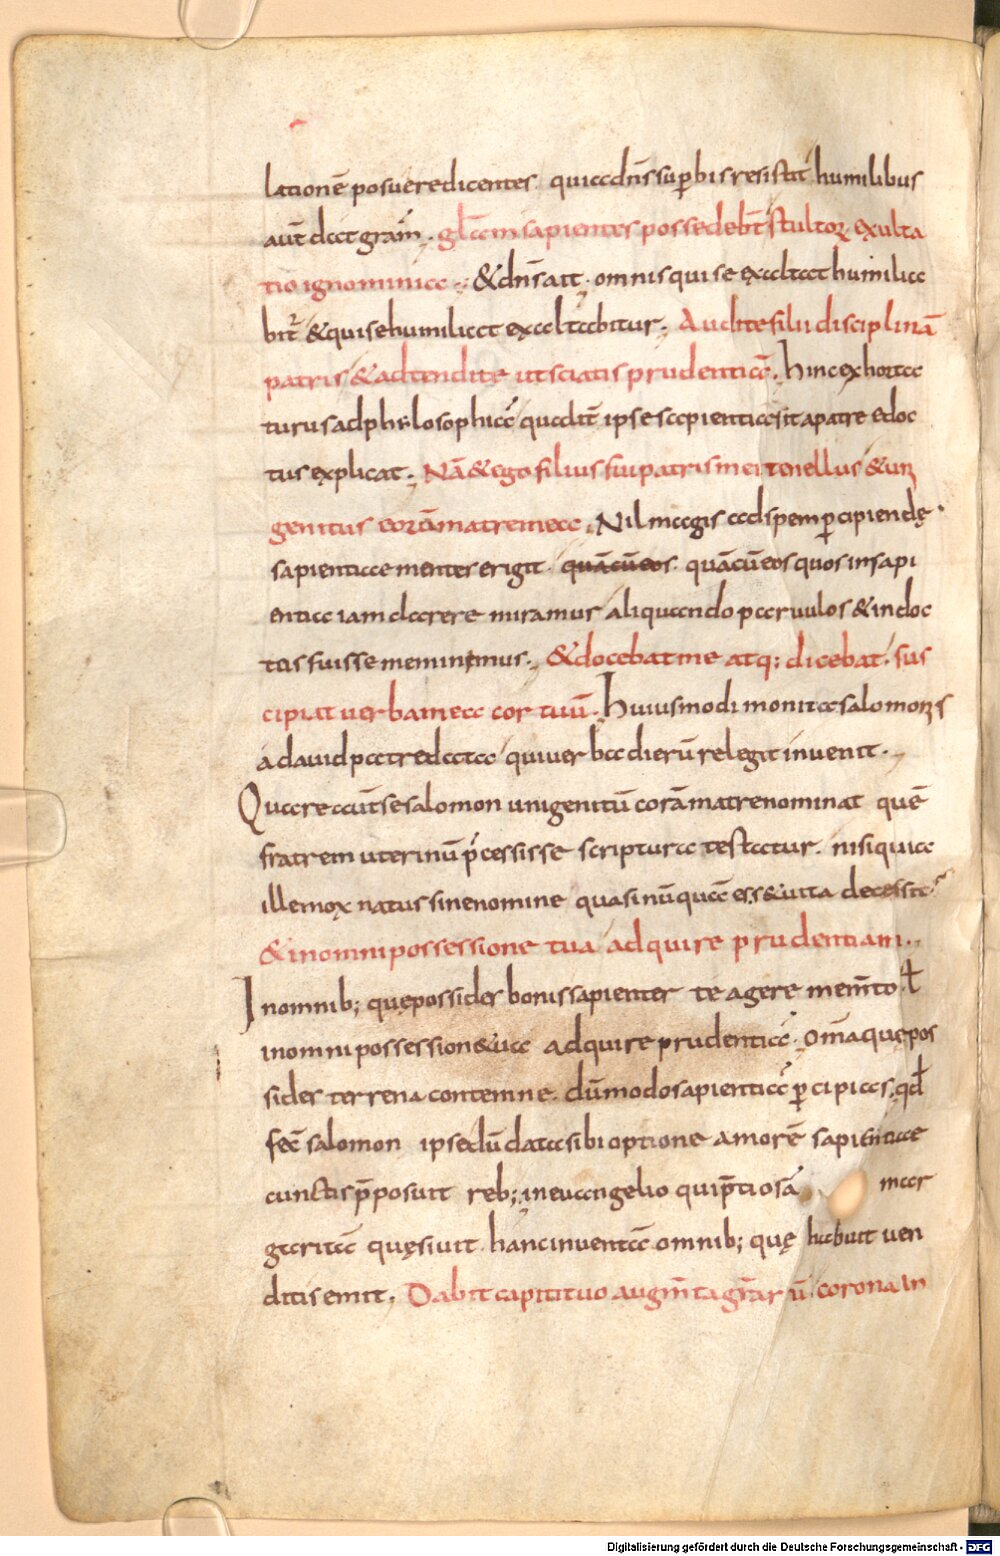 lationē posuere dicentes quia dn̄s suꝑbis resistit humilibus
aut̄ dat gratiā. glāam sapientes possedebt̄ stultoꝝ exulta
tio ignominia. & dn̄s ait. omnis qui se exaltat humilia
bit̄ & qui se humiliat exaltabitur. Audite filii disciplinā
patris & adtendite ut sciatis prudentiā. hinc exhorta
turus ad philosophiā qualit̄ ipse sapientia sit a patre edoc
tus explicat. Nā & ego filius fui patris mei tenellus & uni
genitus corā matre mea. Nil magis ad spem ꝑcipiendę
sapientiae mentes erigit quācū eos. quācū eos quos in sapi
entia iam darere miramur aliquando paruulos & indoc
tos fuisse meminimus. & docebat me atq; dicebat. sus
cipiat uerba mea cor tuū. huius modi monita salomonis
a dauid patre data qui uerba dierū relegit inuenit.
Quare aut̄ se salomon unigenitū corā matre nominat quē
fratrem uterinū p̄cessisse scriptura testatur. nisi quia
ille mox natus sine nomine quasi nūquā ess& uita decessit
& in omni possessione tua adquire prudentiam.
In omnib; quę possides bonis sapienter te agere mem̄to ł
in omni possession&ua adquire prudentiā. om̄a quę pos
sides terrena contemne. dū modo sapientiā ꝑcipias. qd̄
fec̄ salomon ipse dū data sibi optione amorē sapientiae
cunctis p̄posuit reb; in euangelio qui p̄tiosā mar
garitā quęsiuit hanc inuentā omnib; quę habuit uen
ditis emit. Dabit capiti tuo augm̄ta gr̄arū & corona in
Digitalisierung gefördert durch die Deutsche Forschungsgemeinschaft - DFG